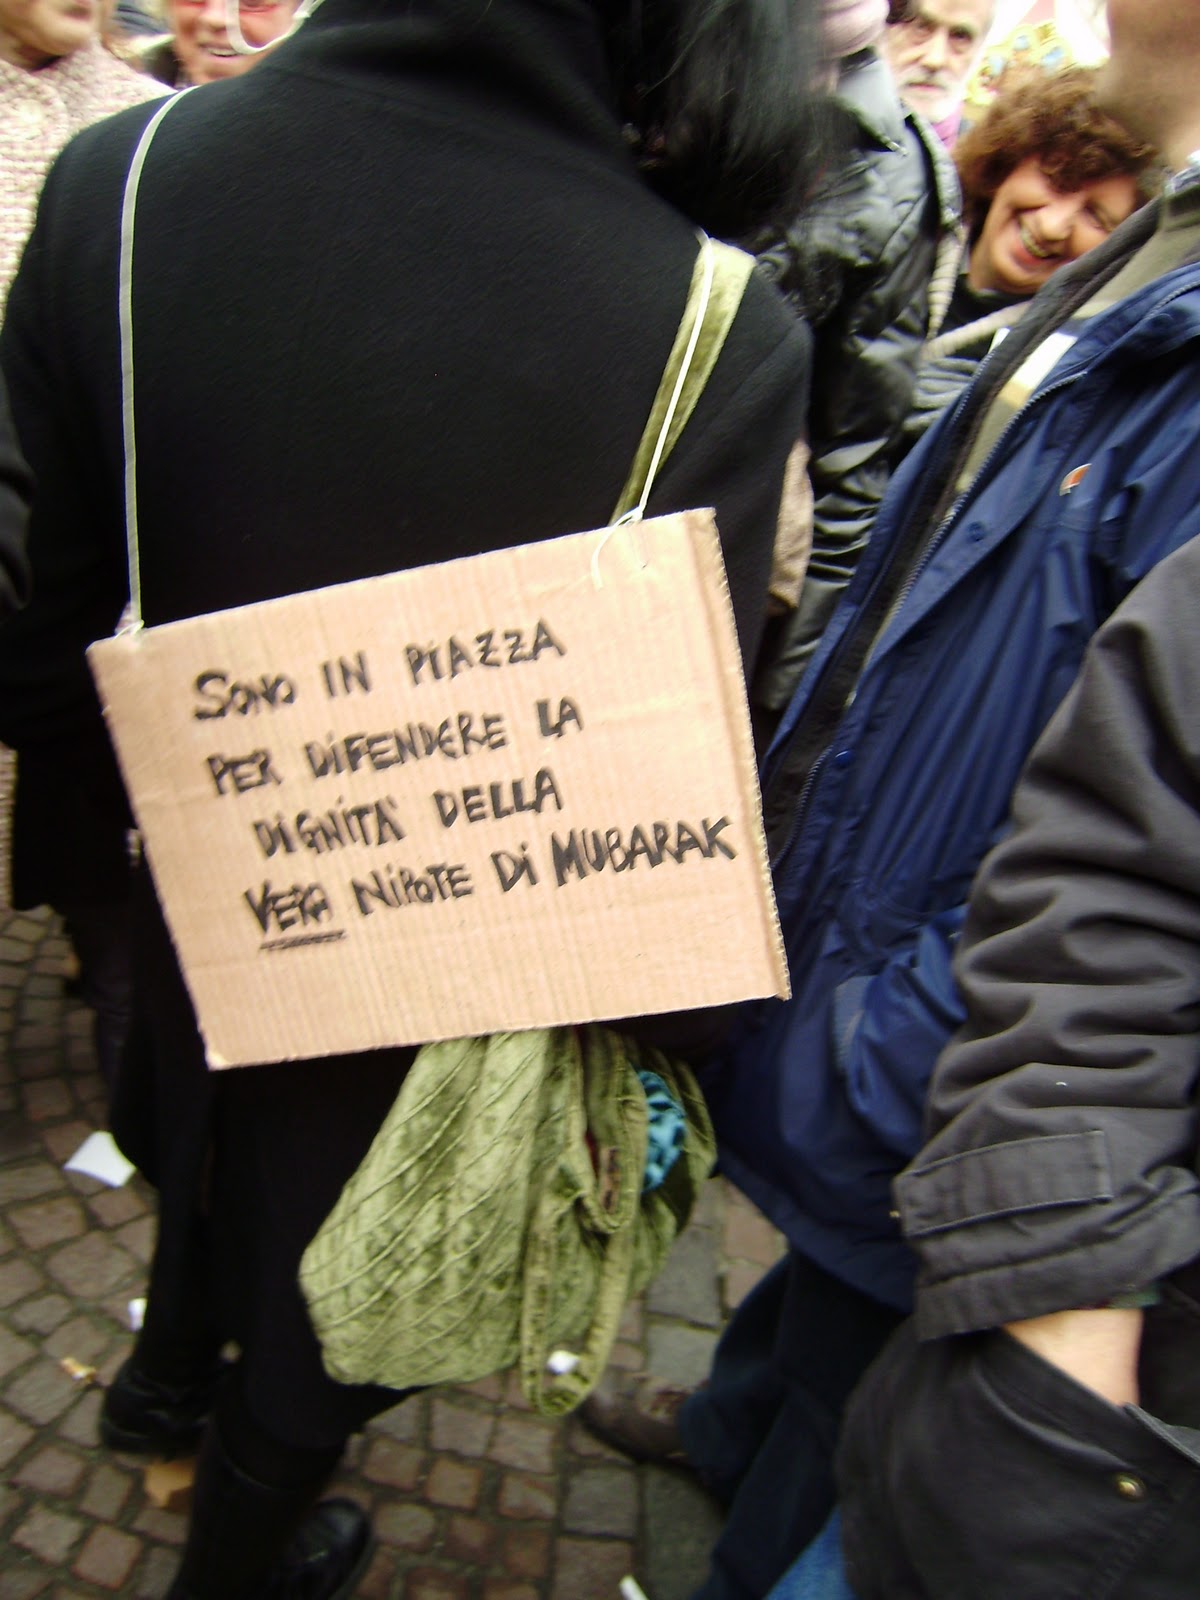 SONO IN PIAZZA
PER DIFENDERE LA
DIGNITÀ DELLA
VERA NIPOTE DI MUBARAK